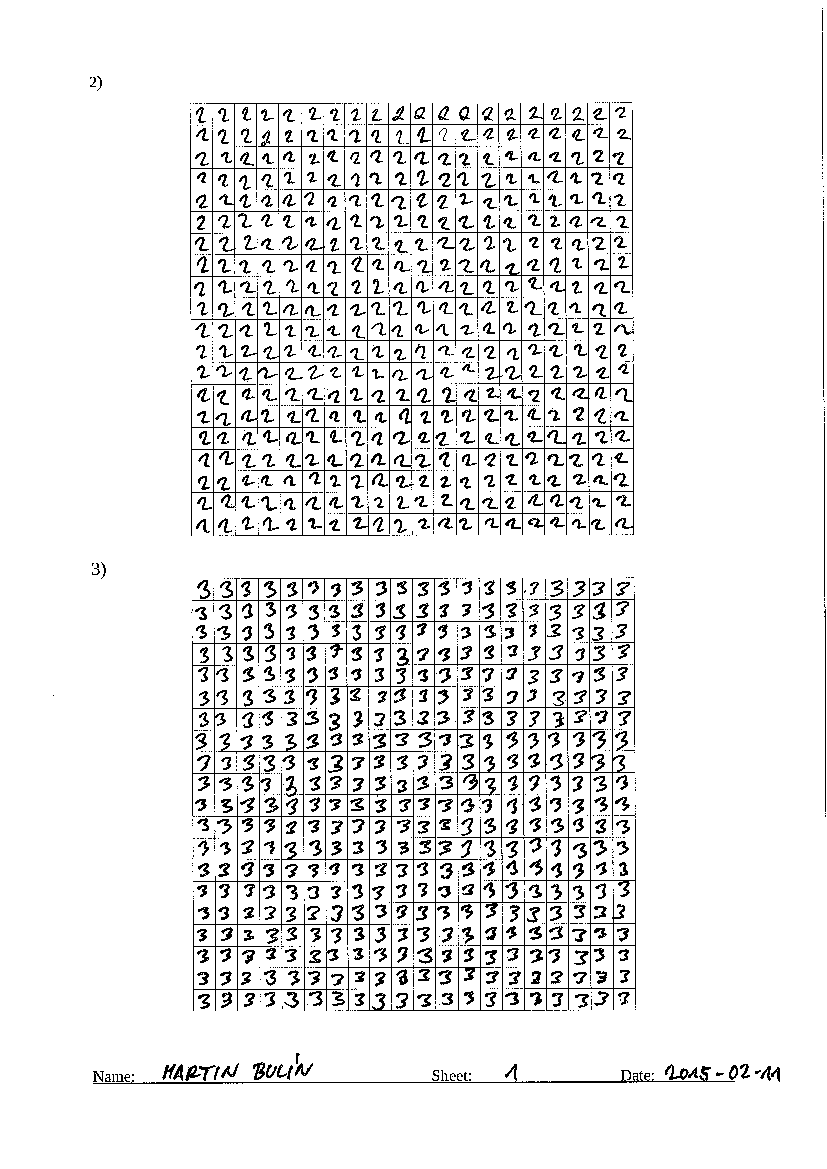 2)
2 2 2 2 2 2 2 2 2 2 2 2 2 2 2 2 2 2 2 2
2 2 2 2 2 2 2 2 2 2 2 2 2 2 2 2 2 2 2 2
2 2 2 2 2 2 2 2 2 2 2 2 2 2 2 2 2 2 2 2
2 2 2 2 2 2 2 2 2 2 2 2 2 2 2 2 2 2 2 2
2 2 2 2 2 2 2 2 2 2 2 2 2 2 2 2 2 2 2 2
2 2 2 2 2 2 2 2 2 2 2 2 2 2 2 2 2 2 2 2
2 2 2 2 2 2 2 2 2 2 2 2 2 2 2 2 2 2 2 2
2 2 2 2 2 2 2 2 2 2 2 2 2 2 2 2 2 2 2 2
2 2 2 2 2 2 2 2 2 2 2 2 2 2 2 2 2 2 2 2
2 2 2 2 2 2 2 2 2 2 2 2 2 2 2 2 2 2 2 2
2 2 2 2 2 2 2 2 2 2 2 2 2 2 2 2 2 2 2 2
2 2 2 2 2 2 2 2 2 2 2 2 2 2 2 2 2 2 2 2
2 2 2 2 2 2 2 2 2 2 2 2 2 2 2 2 2 2 2 2
2 2 2 2 2 2 2 2 2 2 2 2 2 2 2 2 2 2 2 2
2 2 2 2 2 2 2 2 2 2 2 2 2 2 2 2 2 2 2 2
2 2 2 2 2 2 2 2 2 2 2 2 2 2 2 2 2 2 2 2
2 2 2 2 2 2 2 2 2 2 2 2 2 2 2 2 2 2 2 2
2 2 2 2 2 2 2 2 2 2 2 2 2 2 2 2 2 2 2 2
2 2 2 2 2 2 2 2 2 2 2 2 2 2 2 2 2 2 2 2
2 2 2 2 2 2 2 2 2 2 2 2 2 2 2 2 2 2 2 2
3)
3 3 3 3 3 3 3 3 3 3 3 3 3 3 3 3 3 3 3 3
3 3 3 3 3 3 3 3 3 3 3 3 3 3 3 3 3 3 3 3
3 3 3 3 3 3 3 3 3 3 3 3 3 3 3 3 3 3 3 3
3 3 3 3 3 3 3 3 3 3 3 3 3 3 3 3 3 3 3 3
3 3 3 3 3 3 3 3 3 3 3 3 3 3 3 3 3 3 3 3
3 3 3 3 3 3 3 3 3 3 3 3 3 3 3 3 3 3 3 3
3 3 3 3 3 3 3 3 3 3 3 3 3 3 3 3 3 3 3 3
3 3 3 3 3 3 3 3 3 3 3 3 3 3 3 3 3 3 3 3
3 3 3 3 3 3 3 3 3 3 3 3 3 3 3 3 3 3 3 3
3 3 3 3 3 3 3 3 3 3 3 3 3 3 3 3 3 3 3 3
3 3 3 3 3 3 3 3 3 3 3 3 3 3 3 3 3 3 3 3
3 3 3 3 3 3 3 3 3 3 3 3 3 3 3 3 3 3 3 3
3 3 3 3 3 3 3 3 3 3 3 3 3 3 3 3 3 3 3 3
3 3 3 3 3 3 3 3 3 3 3 3 3 3 3 3 3 3 3 3
3 3 3 3 3 3 3 3 3 3 3 3 3 3 3 3 3 3 3 3
3 3 3 3 3 3 3 3 3 3 3 3 3 3 3 3 3 3 3 3
3 3 3 3 3 3 3 3 3 3 3 3 3 3 3 3 3 3 3 3
3 3 3 3 3 3 3 3 3 3 3 3 3 3 3 3 3 3 3 3
3 3 3 3 3 3 3 3 3 3 3 3 3 3 3 3 3 3 3 3
3 3 3 3 3 3 3 3 3 3 3 3 3 3 3 3 3 3 3 3
Name: MARTIN BULÍN Sheet: 1 Date: 2015-02-11